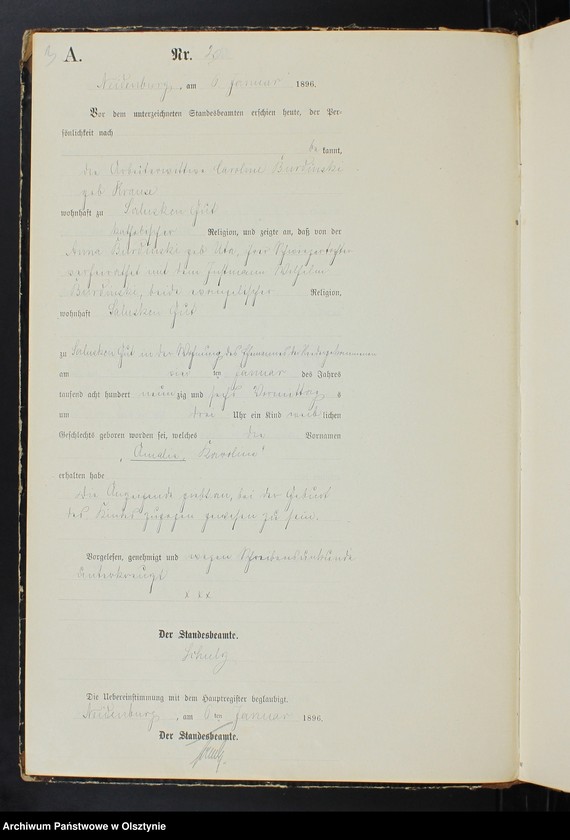 A. Nr. 2
Neidenburg, am 6 Januar 1896.
Vor dem unterzeichneten Standesbeamten erschien heute, der Per-
sönlichkeit nach
be kannt,
die Arbeiterwittwe Caroline Burdinski
geb Krause
wohnhaft zu Salusken Gut
katholischer Religion, und zeigte an, daß von der
Anna Burdinski geb, ihrer Schwiegertochter
verheirathet mit dem Instmann Wilhelm
Burdinski, beide evangelischer Religion,
wohnhaft Salusken Gut
zu Salusken Gut in der Wohnung des Ehemannes der Niedergekommenen
am vier ten Januar des Jahres
tausend acht hundert neun zig und sechs Vormittags
um drei Uhr ein Kind weib lichen
Geschlechts geboren worden sei, welches die Vornamen
"Amalie, Karoline"
erhalten habe
Die Anzeigende giebt an, bei der Geburt
des Kindes zugegen gewesen zu sein.
Vorgelesen, genehmigt und wegen Schreibensunkunde
unterkreuzt
x x x
Der Standesbeamte.
Schulz
Die Uebereinstimmung mit dem Hauptregister beglaubigt.
Neidenburg, am 6 ten Januar 1896.
Der Standesbeamte.
Schulz
Archiwum Państwowe w Olsztynie